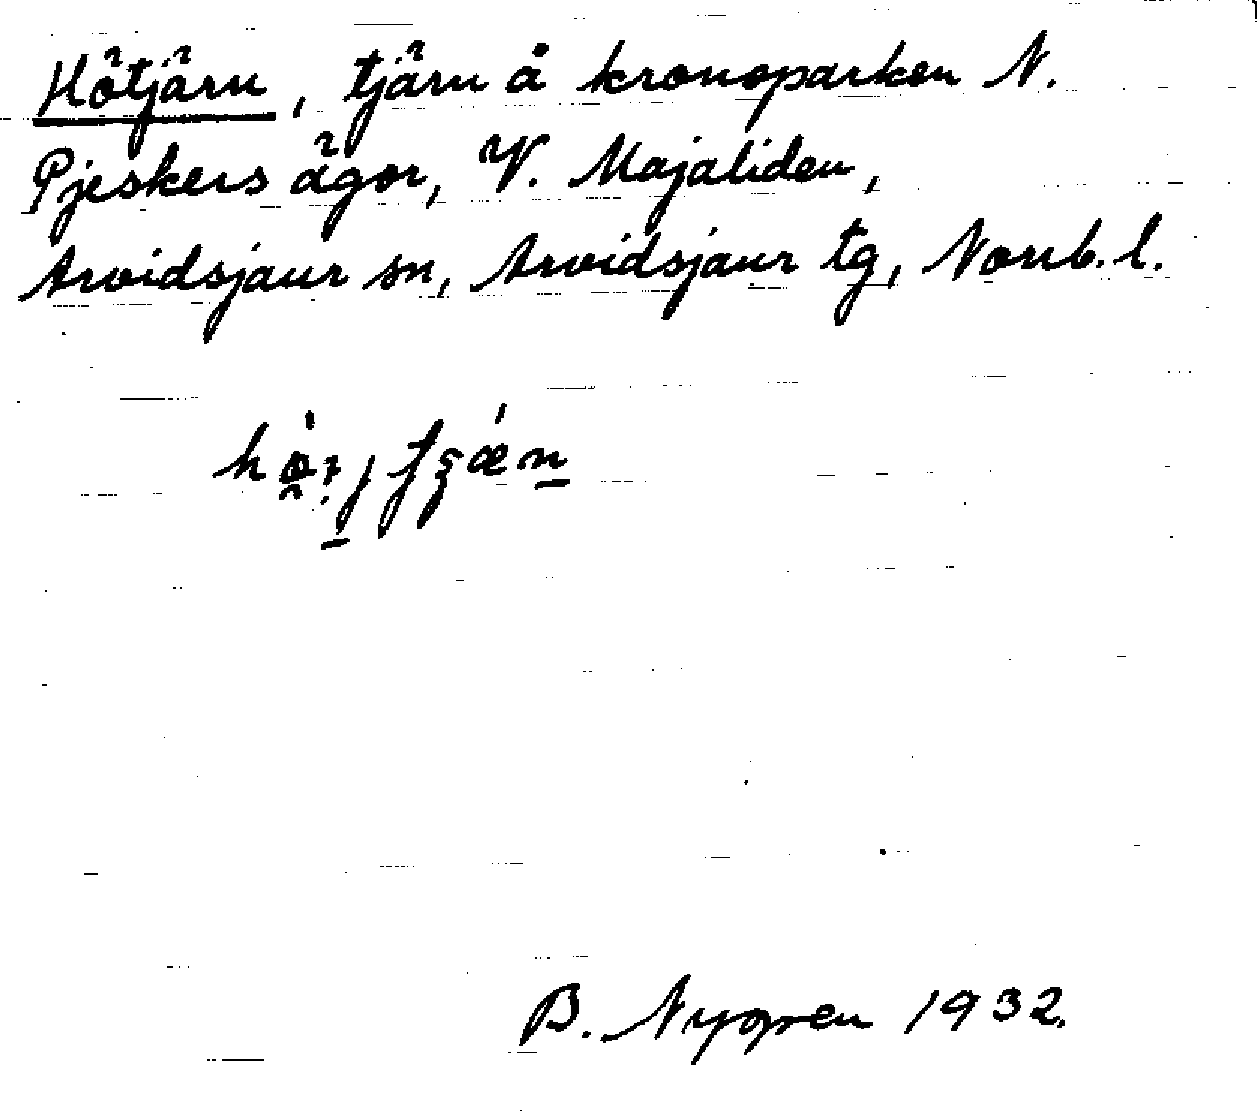 Hötjärn, tjärn å kronoparken N.
Pjeskers ägor, V. Majaliden,
Arvidsjaur sn, Arvidsjaur tg, Norrb. l.
B. Nygren 1932.